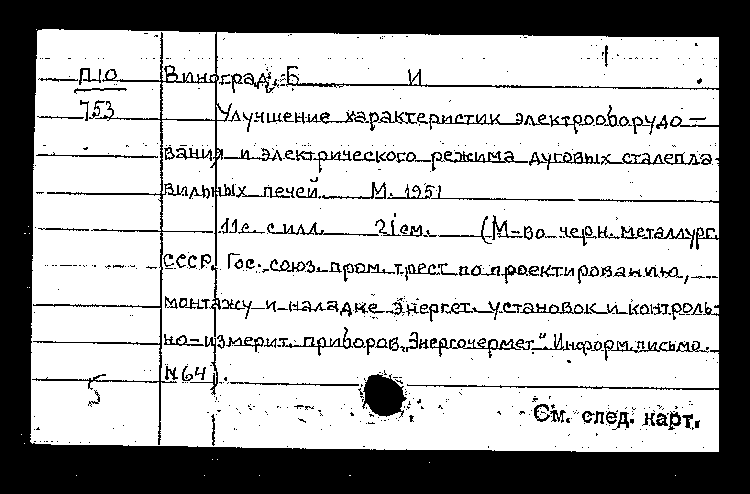 П10 Виноград, Б И
753 Улучшение характеристик электрооборудо-
вания и электрического режима дуговых сталепла-
вильных печей. М. 1951
11с. с илл. 21см. (М-во черн. металлург.
СССР. Гос. союз. пром. трест по проектированию,
монтажу и наладке энергет. установок и контроль-
но-измерит. приборов „Энергочермет". Информ. письмо.
N64).
5
См. след. карт.